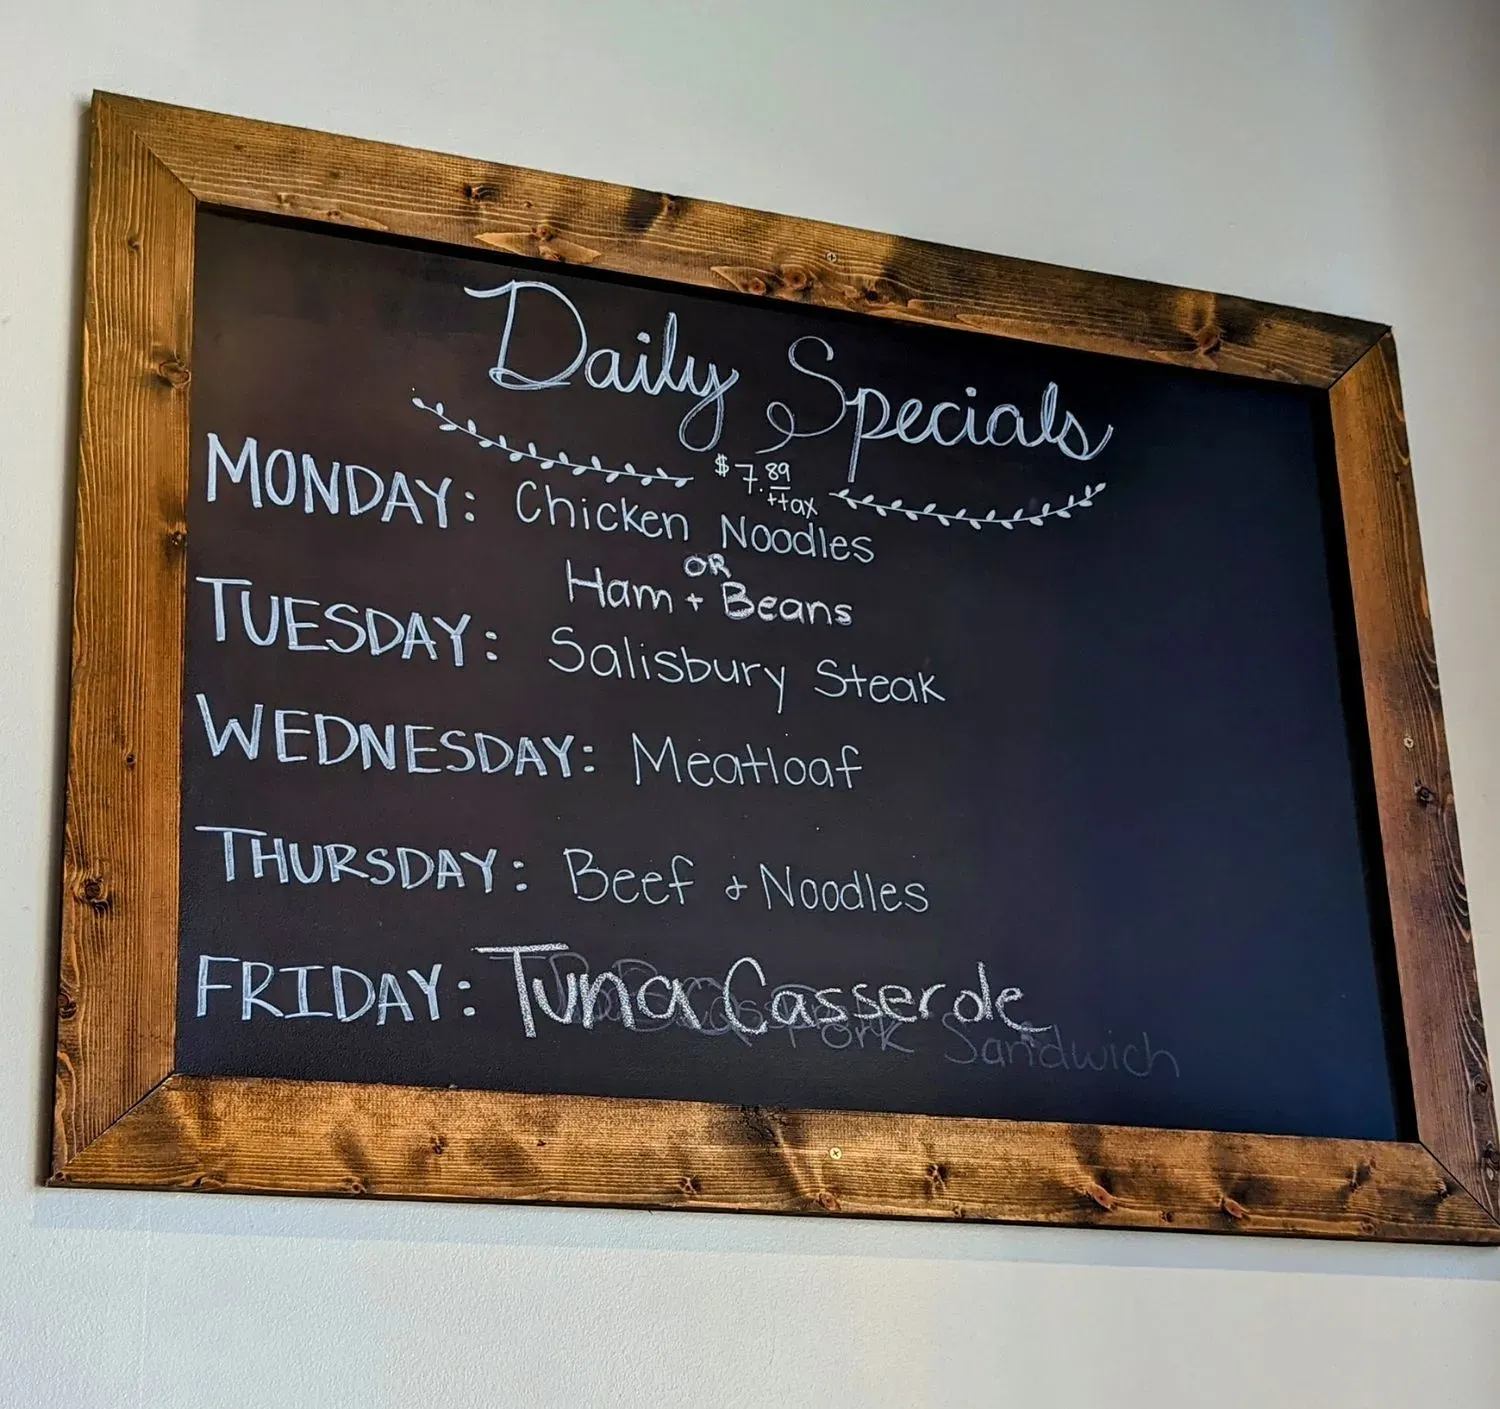 Daily Specials
$7.89
+tax
MONDAY: Chicken Noodles
OR
Ham + Beans
TUESDAY: Salisbury Steak
WEDNESDAY: Meatloaf
THURSDAY: Beef & Noodles
FRIDAY: Tuna Casserole
Pork Sandwich